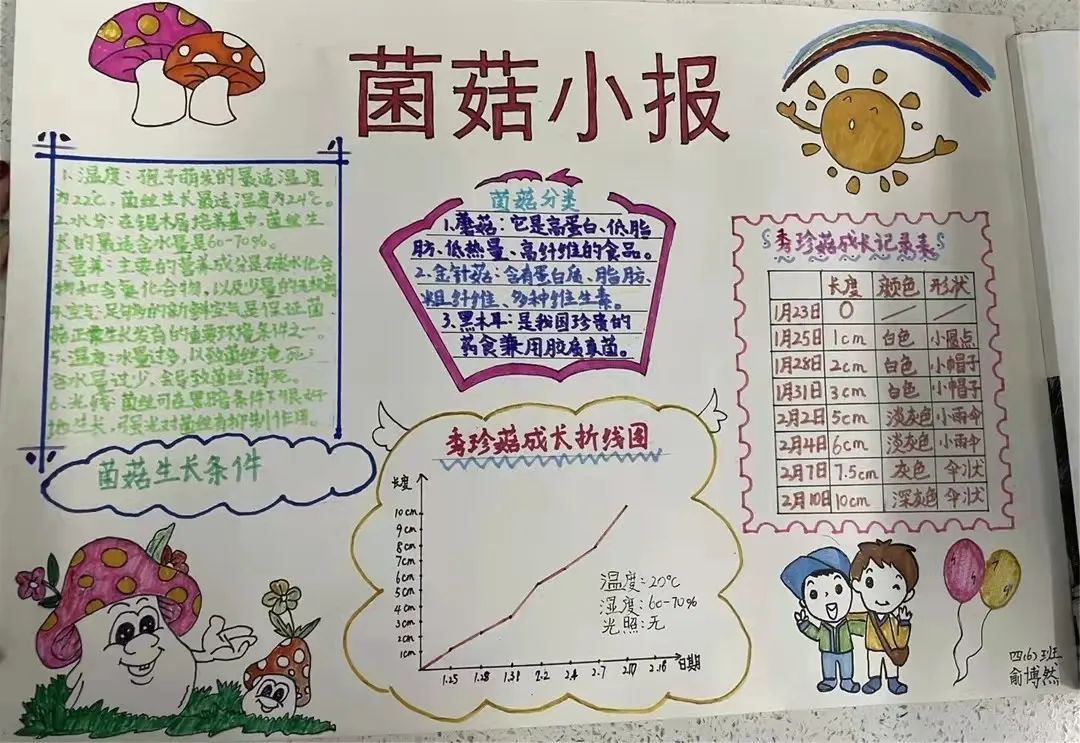 菌菇小报
1.温度：孢子萌发的最适温度
为22℃，菌丝生长最适温度为24℃。
2.水分：在锯木屑培养基中，菌丝生
长的最适含水量是60-70%。
3.营养：主要的营养成分是碳水化合
物和含氮化合物，以及少量的无机盐
4.空气：足够的新鲜空气是保证菌
菇正常生长发育的重要环境条件之一
5.湿度：水量过多，以致菌丝淹死；
含水量过少，会导致菌丝渴死。
6.光线：菌丝可在黑暗条件下很好
地生长，强光对菌丝有抑制作用。
菌菇生长条件
菌菇分类
1.蘑菇：它是高蛋白、低脂
肪、低热量、高纤维的食品。
2.金针菇：含有蛋白质、脂肪、
粗纤维、多种维生素。
3.黑木耳：是我国珍贵的
药食兼用胶质真菌。
秀珍菇成长记录表
长度 颜色 形状
1月23日 0 / /
1月25日 1cm 白色 小圆点
1月28日 2cm 白色 小帽子
1月31日 3cm 白色 小帽子
2月2日 5cm 淡灰色 小雨伞
2月4日 6cm 淡灰色 小雨伞
2月7日 7.5cm 灰色 伞状
2月10日 10cm 深灰色 伞状
秀珍菇成长折线图
长度
10cm
9cm
8cm
7cm
6cm
5cm
4cm
3cm
2cm
1cm
温度：20℃
湿度：60-70%
光照：无
1.25 1.28 1.31 2.2 2.4 2.7 日期
四(6)班
俞博然